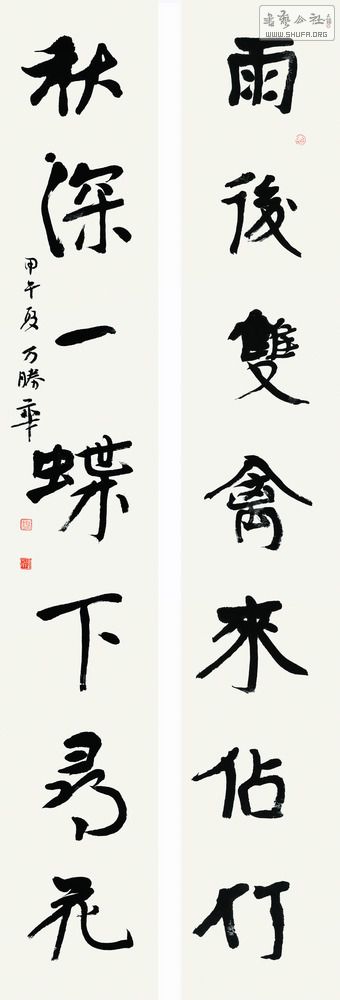 書藝公社
WWW.SHUFA.ORG
雨後雙禽來佔竹
秋深一蝶下尋花
甲午夏万勝華